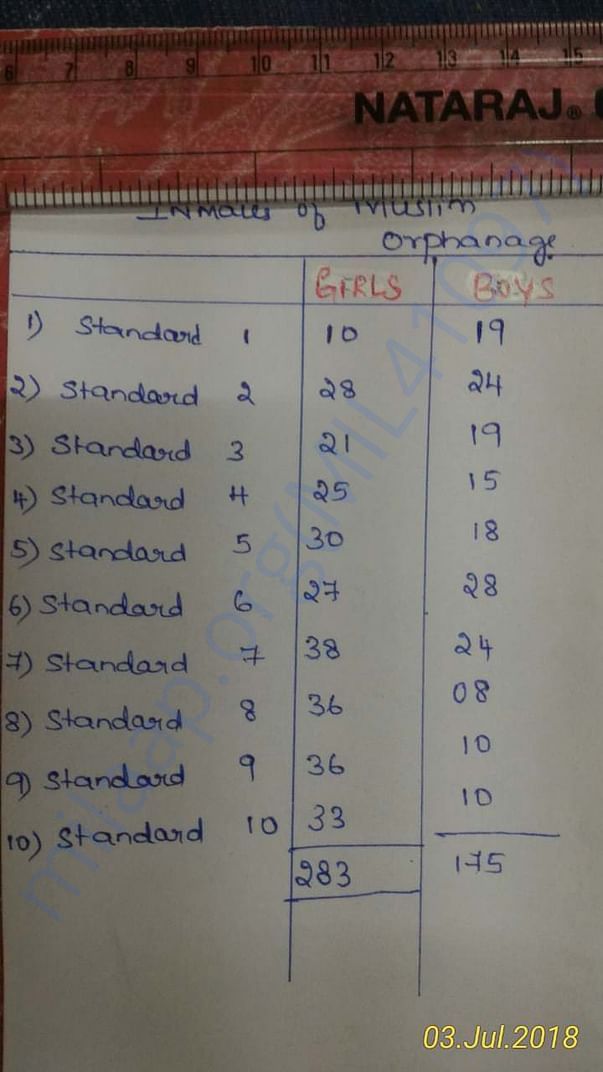 6 7 8 9 10 11 12 13 14 15
NATARAJ®
Inmates of Muslim
Orphanage
GIRLS BOYS
1) Standard 1 10 19
2) Standard 2 28 24
3) Standard 3 21 19
4) Standard 4 25 15
5) Standard 5 30 18
6) Standard 6 27 28
7) Standard 7 38 24
8) Standard 8 36 08
9) Standard 9 36 10
10) Standard 10 33 10
283 175
milaap.org(MIL41097)
03.Jul.2018